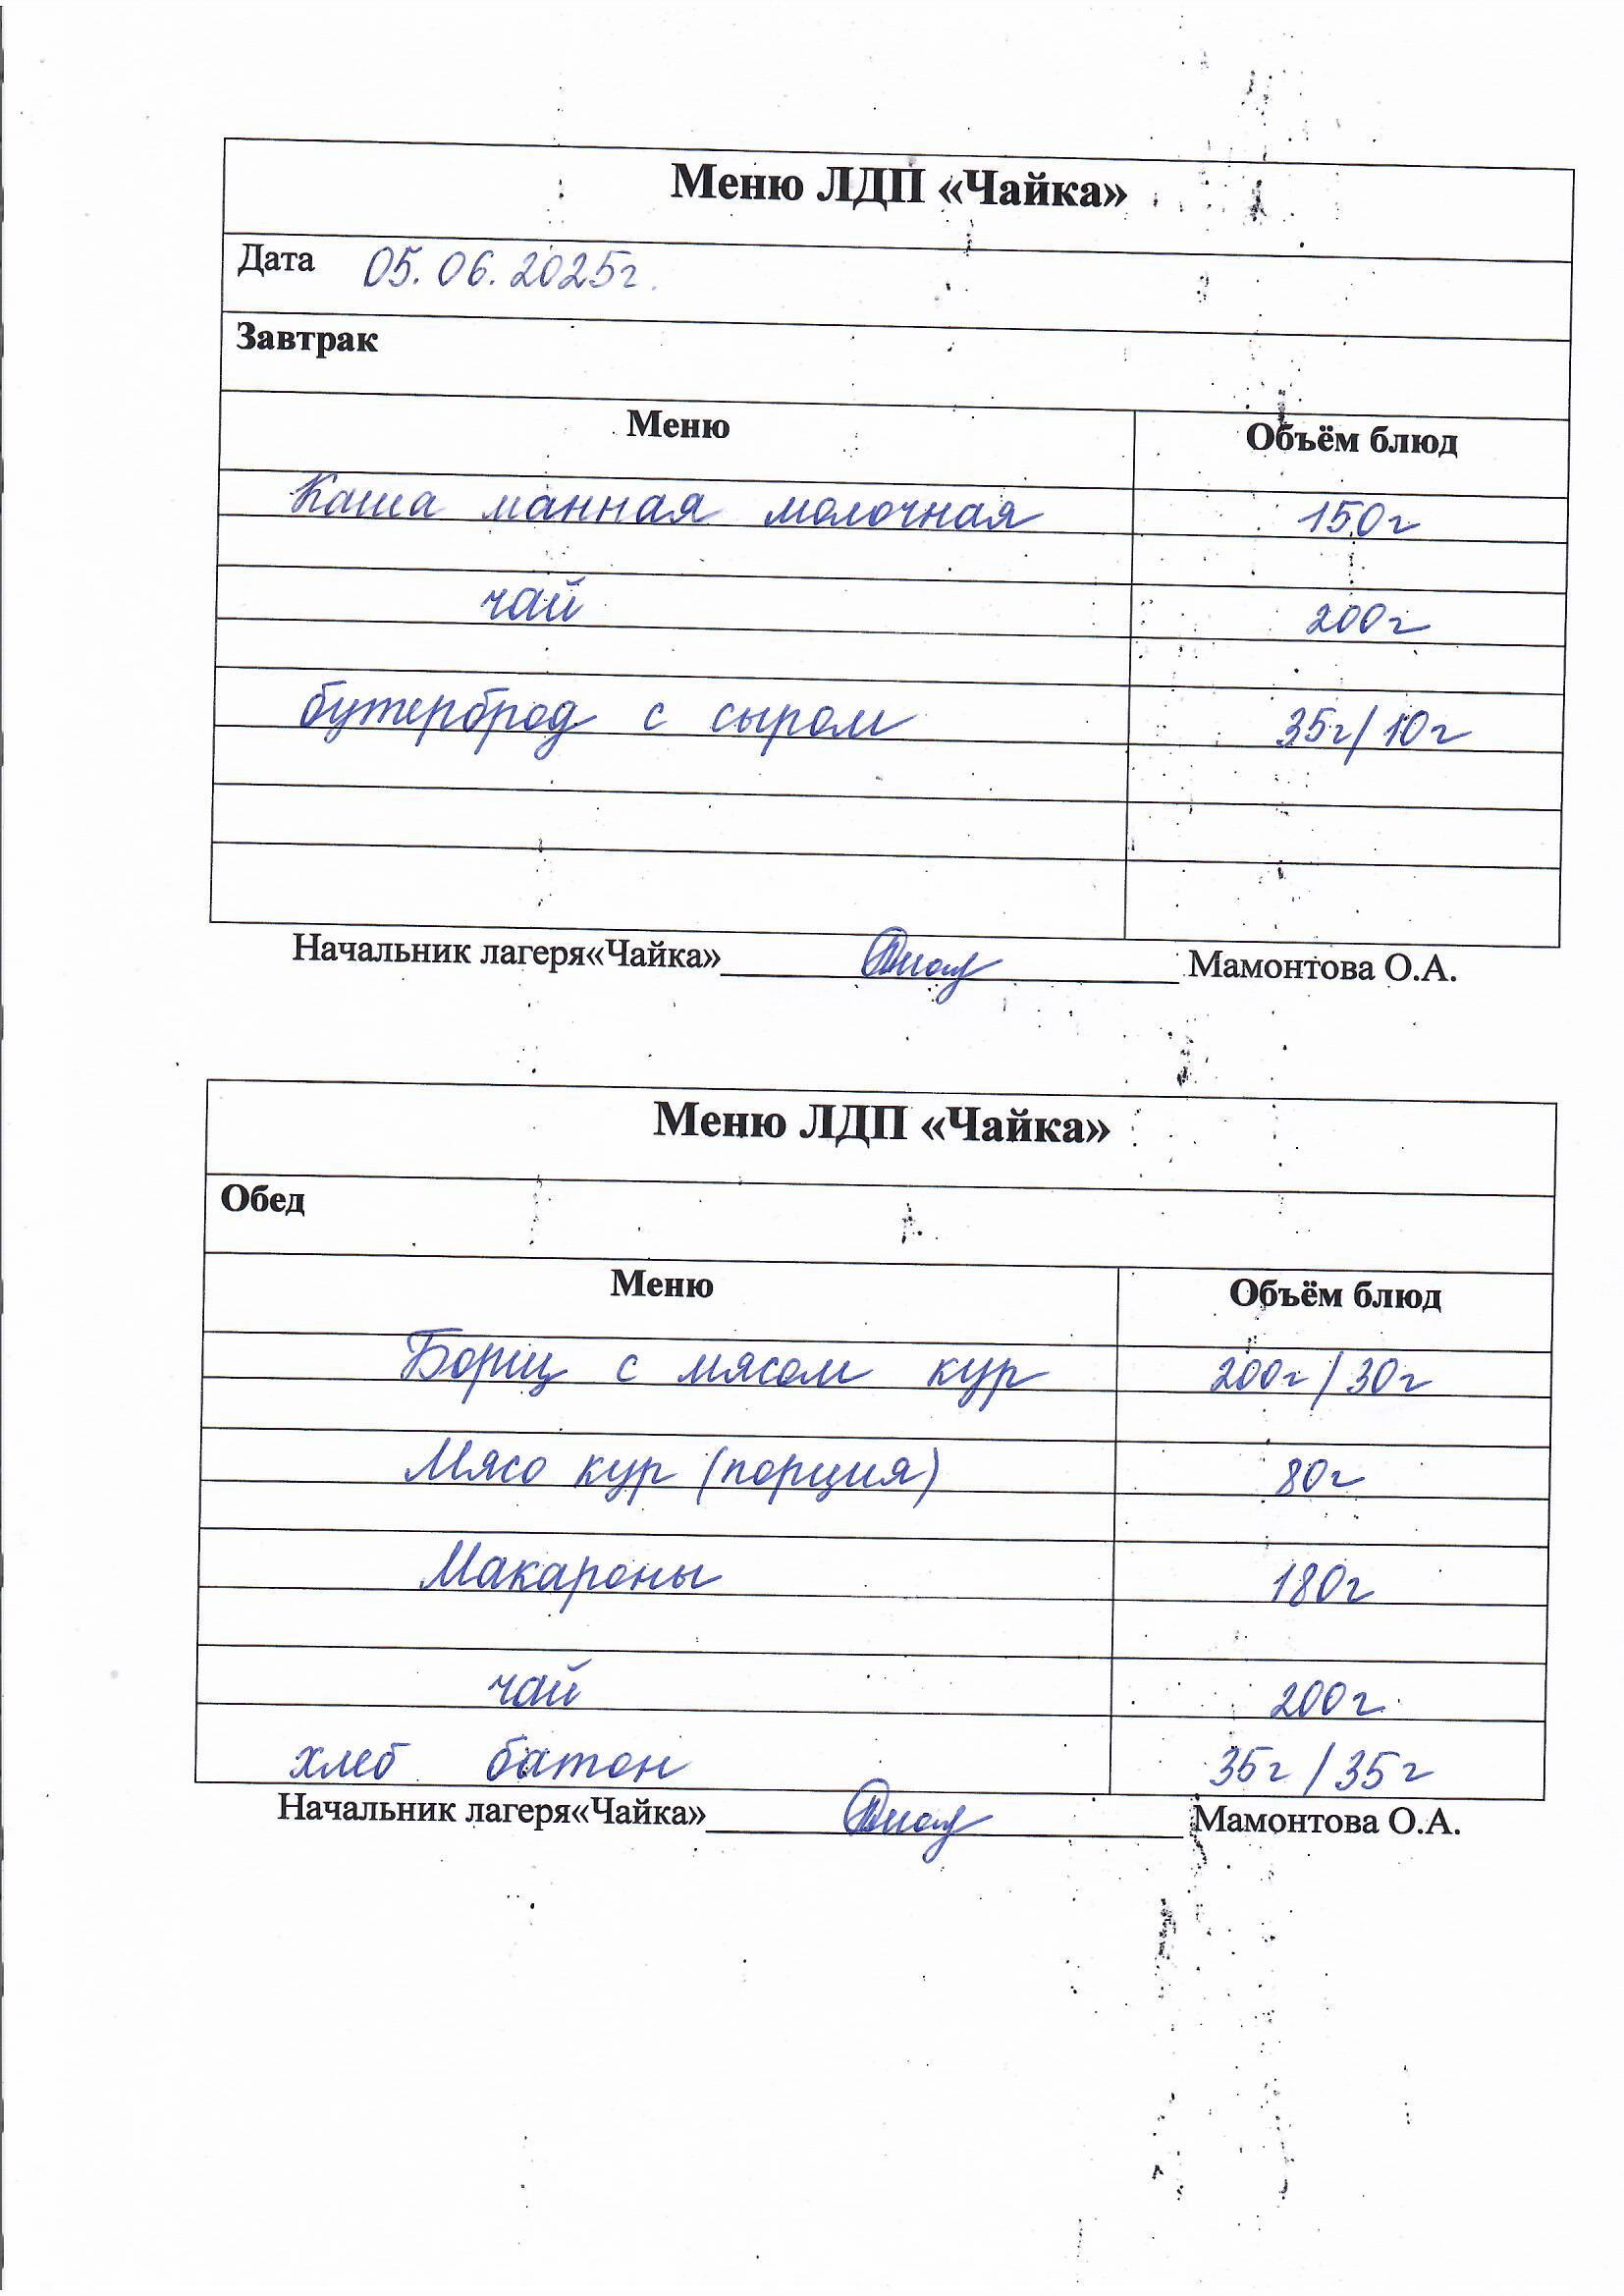 Меню ЛДП «Чайка»
Дата 05.06.2025г.
Завтрак
Меню Объём блюд
Каша манная молочная 150г
чай 200г
бутерброд с сыром 35г/10г
Начальник лагеря«Чайка» Мамонтова О.А.
Меню ЛДП «Чайка»
Обед
Меню Объём блюд
Борщ с мясом кур 200г/30г
Мясо кур (порция) 80г
Макароны 180г
чай 200г.
хлеб батон 35г/35г
Начальник лагеря«Чайка» Мамонтова О.А.